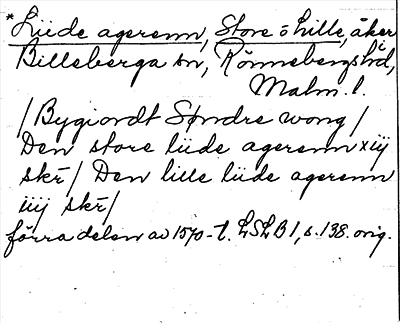 *Liide agerenn, Store o Lille, åker i
Billeberga sn, Rönnebergs hd,
Malm. l.
/ Bygiordt Søndre wong /
Den store liide agerenn xiij
skr/ Den lille liide agerenn
iiij skr/
förra delen av 1570-t. LSLB 1, s. 138. orig.